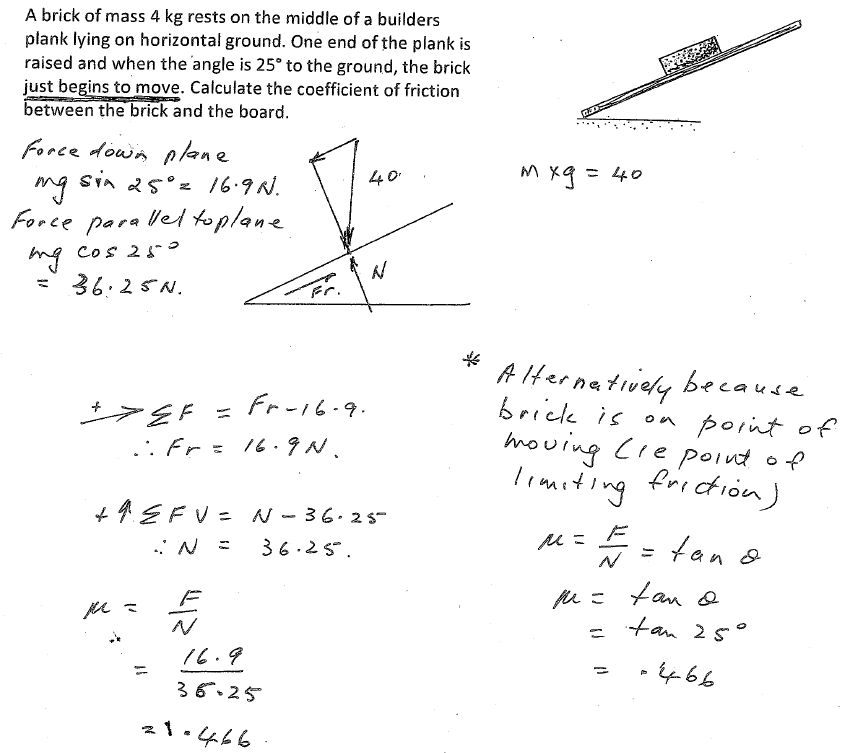 A brick of mass 4 kg rests on the middle of a builders
plank lying on horizontal ground. One end of the plank is
raised and when the angle is 25° to the ground, the brick
just begins to move. Calculate the coefficient of friction
between the brick and the board.
Force down plane
mg sin 25° = 16.9 N.
Force parallel to plane
mg cos 25°
= 36.25 N.
40
N
Fr.
m x g = 40
+→ ΣF = Fr - 16.9.
∴ Fr = 16.9 N.
+↑ ΣFV = N - 36.25
∴ N = 36.25.
μ = F/N
∴
= 16.9/36.25
= 1.466.
* Alternatively because
brick is on point of
moving (ie point of
limiting friction)
μ = F/N = tan θ
μ = tan θ
= tan 25°
= .466